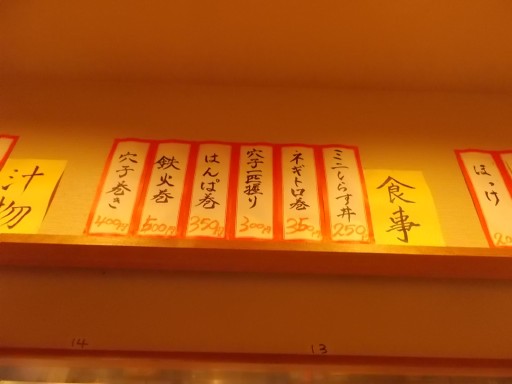 ほっけ
食事
ミニしらす丼
250円
ネギトロ巻
350円
穴子一匹握り
300円
はんぱ巻
350円
鉄火巻
500円
穴子巻き
400円
汁物
13
14